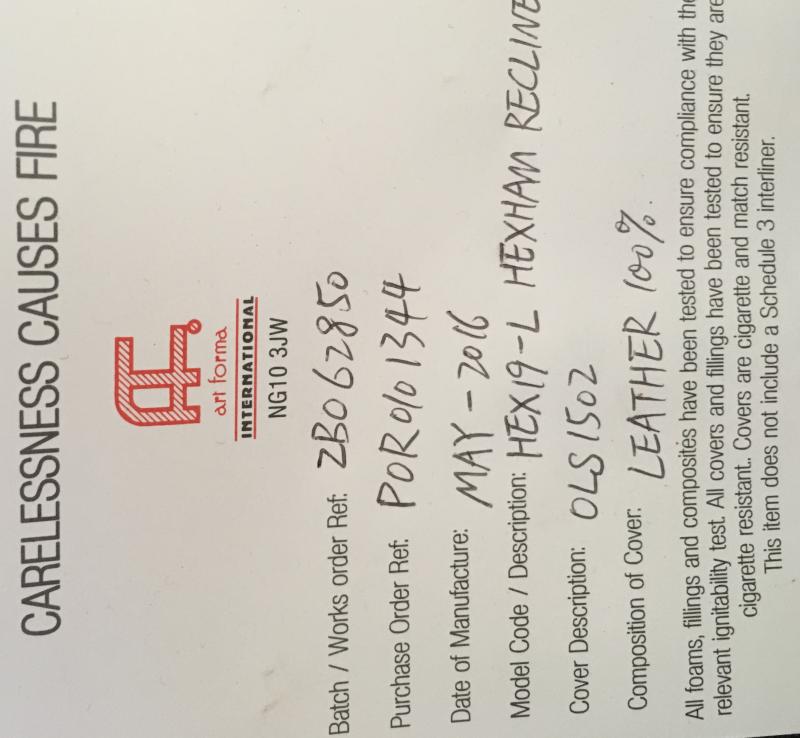 CARELESSNESS CAUSES FIRE
art forma
INTERNATIONAL
NG10 3JW
Batch / Works order Ref: ZB062850
Purchase Order Ref: POR0101344
Date of Manufacture: MAY-2016
Model Code / Description: HEX19-L HEXHAM RECLINE
Cover Description: OLS1502
Composition of Cover: LEATHER 100%.
All foams, fillings and composites have been tested to ensure compliance with the
relevant ignitability test. All covers and fillings have been tested to ensure they are
cigarette resistant.. Covers are cigarette and match resistant.
This item does not include a Schedule 3 interliner.